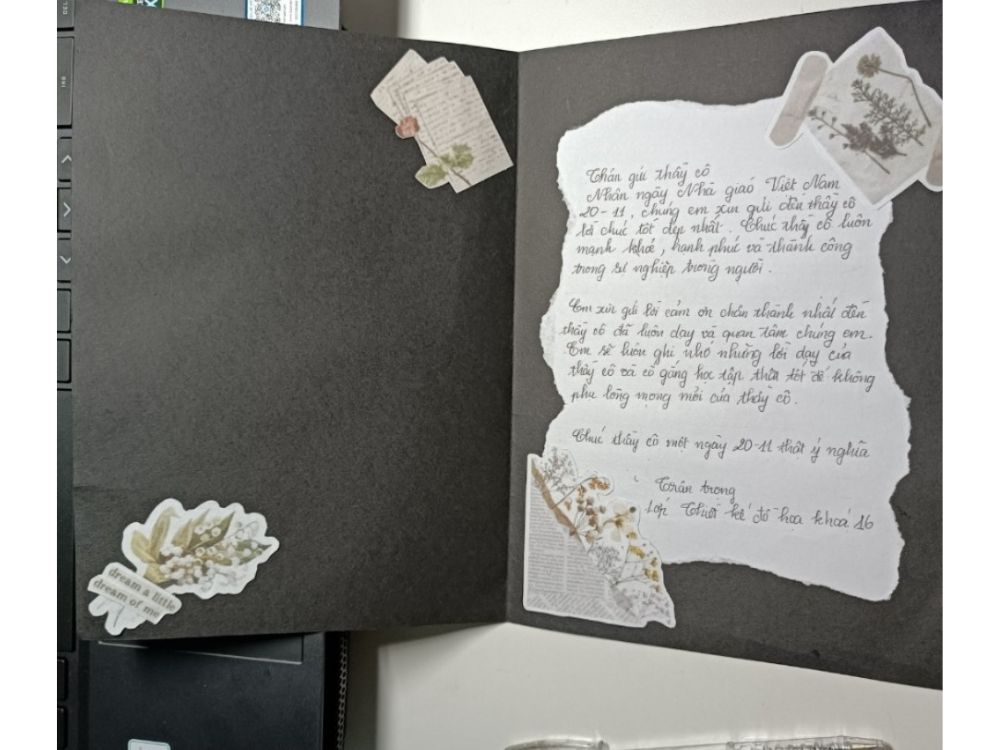 DEL
INS
dream a little
dream of me
Thân gửi thầy cô
Nhân ngày Nhà giáo Việt Nam
20-11, chúng em xin gửi đến thầy cô
lời chúc tốt đẹp nhất. Chúc thầy cô luôn
mạnh khoẻ, hạnh phúc và thành công
trong sự nghiệp trồng người.
Em xin gửi lời cảm ơn chân thành nhất đến
thầy cô đã luôn dạy và quan tâm chúng em.
Em sẽ luôn ghi nhớ những lời dạy của
thầy cô và cố gắng học tập thật tốt để không
phụ lòng mong mỏi của thầy cô.
Chúc thầy cô một ngày 20-11 thật ý nghĩa
Trân trọng
Lớp Thiết kế đồ họa khoá 16